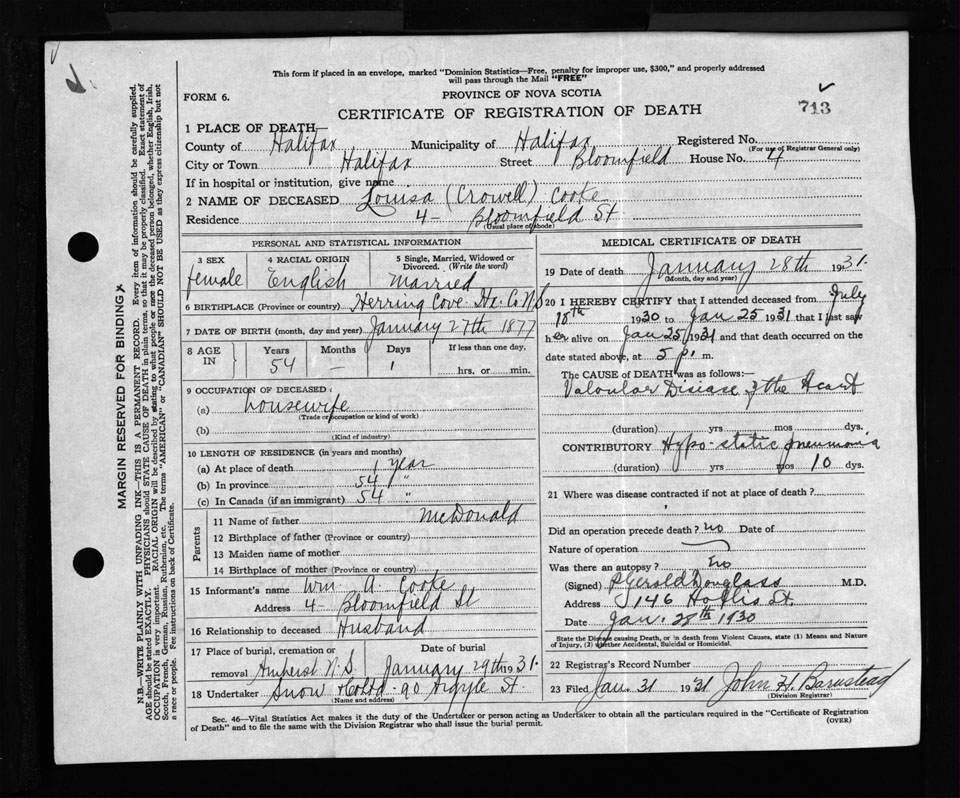 This form if placed in an envelope, marked "Dominion Statistics—Free, penalty for improper use, $300," and properly addressed
will pass through the Mail "FREE"
FORM 6.
PROVINCE OF NOVA SCOTIA
713
CERTIFICATE OF REGISTRATION OF DEATH
1 PLACE OF DEATH—
County of Halifax Municipality of Halifax Registered No.
(For use of Registrar General only)
City or Town Halifax Street Bloomfield House No. 4
If in hospital or institution, give name
2 NAME OF DECEASED Louisa (Crowell) Cooke
Residence 4- Bloomfield St
(Usual place of abode)
PERSONAL AND STATISTICAL INFORMATION
3 SEX 4 RACIAL ORIGIN 5 Single, Married, Widowed or
Divorced. (Write the word)
female English Married
6 BIRTHPLACE (Province or country) Herring Cove Hx. Co NS
7 DATE OF BIRTH (month, day and year) January 27th 1877
8 AGE IN Years Months Days If less than one day,
54 — 1 hrs. or min.
9 OCCUPATION OF DECEASED
(a) housewife
(Trade or occupation or kind of work)
(b)
(Kind of industry)
10 LENGTH OF RESIDENCE (in years and months)
(a) At place of death 1 year
(b) In province 54 "
(c) In Canada (if an immigrant) 54 "
Parents
11 Name of father McDonald
12 Birthplace of father (Province or country)
13 Maiden name of mother
14 Birthplace of mother (Province or country)
15 Informant's name Wm. A. Cooke
Address 4- Bloomfield St
16 Relationship to deceased Husband
17 Place of burial, cremation or Date of burial
removal Amherst N.S. January 29th 1931.
18 Undertaker Snow & Co Ltd. 90 Argyle St.
(Name and address)
MEDICAL CERTIFICATE OF DEATH
19 Date of death January 28th 1931.
(Month, day and year)
20 I HEREBY CERTIFY that I attended deceased from July
18th 1930 to Jan 25 1931 that I last saw
her alive on Jan 25 1931 and that death occurred on the
date stated above, at 5 p. m.
The CAUSE OF DEATH was as follows:—
Valvular Disease of the Heart
(duration) yrs mos dys.
CONTRIBUTORY Hypo-static pneumonia
(duration) yrs mos 10 dys.
21 Where was disease contracted if not at place of death?
Did an operation precede death? no Date of
Nature of operation
Was there an autopsy? no
(Signed) P Gerald Douglass M.D.
Address 146 Hollis St.
Date Jan. 28th 1930
State the Disease causing Death, or in death from Violent Causes, state (1) Means and Nature
of Injury, (2) whether Accidental, Suicidal or Homicidal.
22 Registrar's Record Number
23 Filed Jan. 31 1931 John H. Barnstead
(Division Registrar)
Sec. 46—Vital Statistics Act makes it the duty of the Undertaker or person acting as Undertaker to obtain all the particulars required in the "Certificate of Registration
of Death" and to file the same with the Division Registrar who shall issue the burial permit.
(OVER)
MARGIN RESERVED FOR BINDING
N.B.—WRITE PLAINLY WITH UNFADING INK—THIS IS A PERMANENT RECORD. Every item of information should be carefully supplied.
AGE should be stated EXACTLY. PHYSICIANS should STATE CAUSE OF DEATH in plain terms, so that it may be properly classified. Exact statement of
OCCUPATION is very important. RACIAL ORIGIN will be described by stating to what people or race the deceased person belonged, whether English, Irish,
Scotch, French, German, Russian, Ruthenian, etc. The terms "AMERICAN" or "CANADIAN" SHOULD NOT BE USED as they express citizenship but not
a race or people. See instructions on back of Certificate.